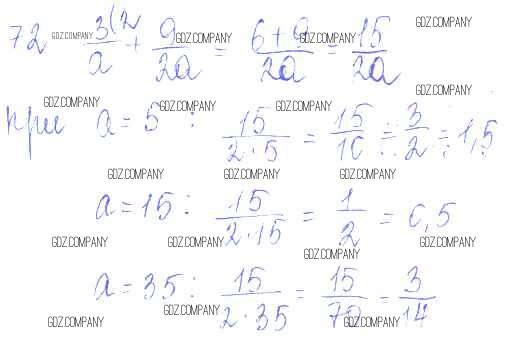 72 3(2/a + 9/2a = 6+9/2a = 15/2a
при a = 5 : 15/2·5 = 15/10 = 3/2 = 1,5
a = 15 : 15/2·15 = 1/2 = 0,5
a = 35 : 15/2·35 = 15/70 = 3/14
GDZ.COMPANY GDZ.COMPANY GDZ.COMPANY GDZ.COMPANY
GDZ.COMPANY GDZ.COMPANY GDZ.COMPANY GDZ.COMPANY
GDZ.COMPANY GDZ.COMPANY GDZ.COMPANY
GDZ.COMPANY GDZ.COMPANY GDZ.COMPANY GDZ.COMPANY
GDZ.COMPANY GDZ.COMPANY GDZ.COMPANY